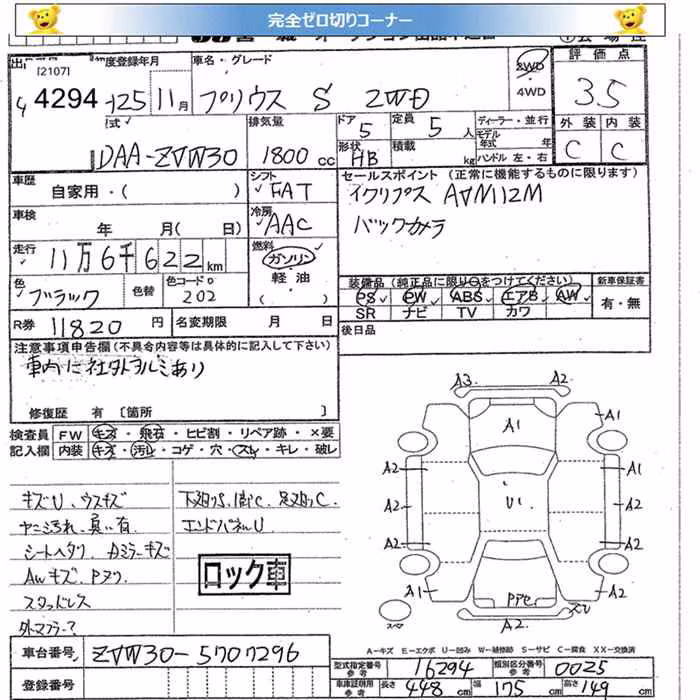 完全ゼロ切りコーナー
[2107]
初度登録年月 車名・グレード 2WD 評価点
4294 25 11月 プリウス S 2WD 4WD 3.5
型式 排気量 ドア 定員 ディーラー・並行 外装 内装
DAA-ZVW30 1800cc 5 5人 モデル年式 年 C C
形状 HB 積載 kg ハンドル 左・右
車歴 シフト セールスポイント (正常に機能するものに限ります)
自家用・( ) FAT イクリプス AVN112M
車検 冷房 バックカメラ
年 月(日) AAC
走行 燃料
11万6千622km ガソリン
軽油
( )
色 色替 色コードNo 装備品(純正品に限り○をつけてください) 新車保証書
ブラック 202 PS PW ABS エアB AW 有・無
SR ナビ TV カワ
R券 11820円 名変期限 月 日 後日品
注意事項申告欄(不具合内容等は具体的に記入して下さい)
車内に社外ホルミあり
修復歴 有〔箇所 〕
検査員 FW キズ・飛石・ヒビ割・リペア跡・×要
記入欄 内装 キズ・汚レ・コゲ・穴・スレ・キレ・破レ
キズU、ウスキズ
ヤニ汚れ、臭い有
シートヘタリ、Aミラーキズ
AWキズ、Pヌケ
スタッドレス
外マフラー?
下廻りS、錆C、足廻りC、
エンドパネルU
ロック車
A3 A2
A1 A1
A2 A2
A2 U1 A2
A2 A2
A1 A2
PアセU
スペア A2
A-キズ E-エクボ U-凹み W-補修跡 S-サビ C-腐食 XX-交換済
車台番号 ZVW30-5707296
登録番号
型式指定番号 参考 16294 類別区分番号 参考 0025
車庫証明用 参考 長さ 448cm 幅 175cm 高さ 149cm